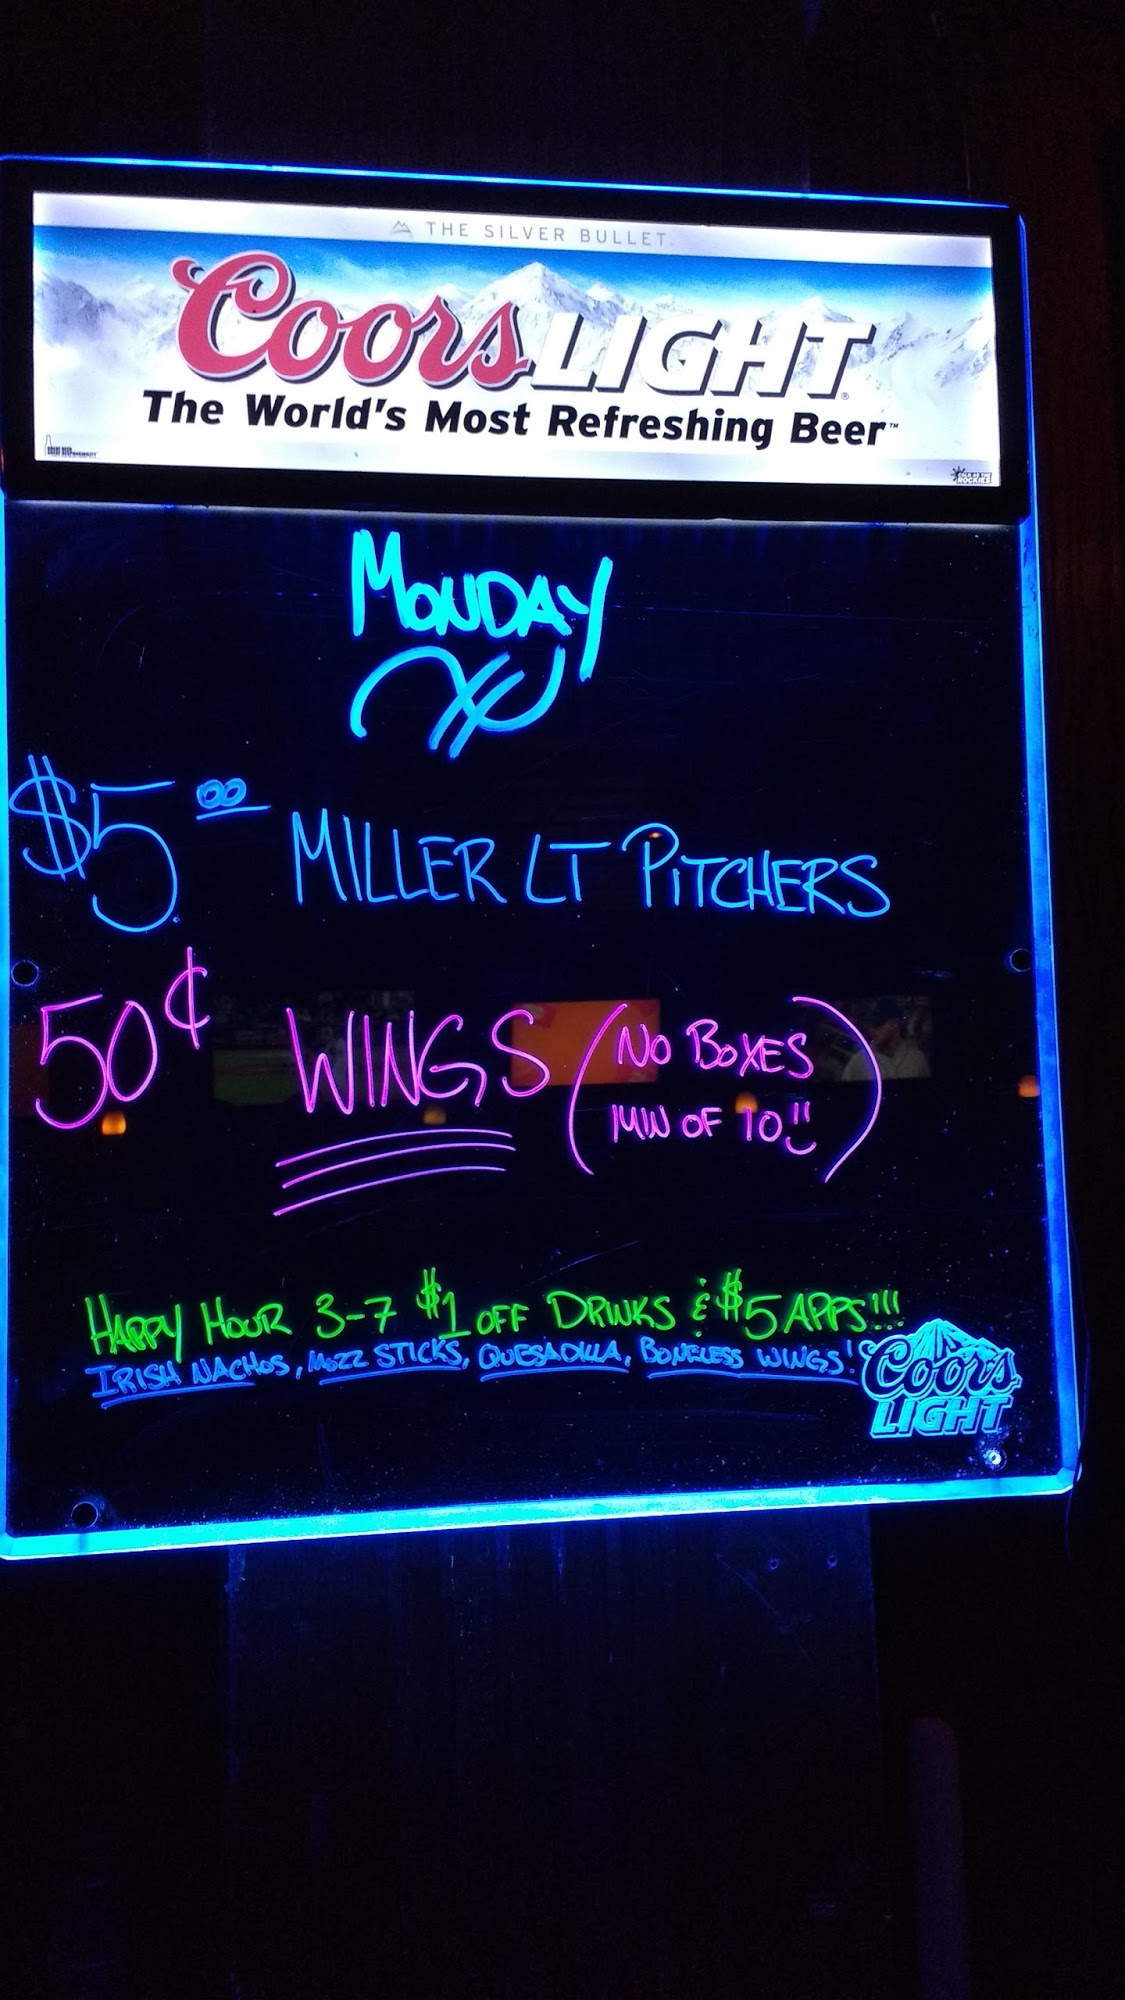 THE SILVER BULLET.
Coors LIGHT®
The World's Most Refreshing Beer™
MONDAY
$5.00 MILLER LT PITCHERS
50¢ WINGS (NO BOXES
MIN OF 10!!)
HAPPY HOUR 3-7 $1 OFF DRINKS & $5 APPS!!!
IRISH NACHOS, MOZZ STICKS, QUESADILLA, BONELESS WINGS!
Coors
LIGHT